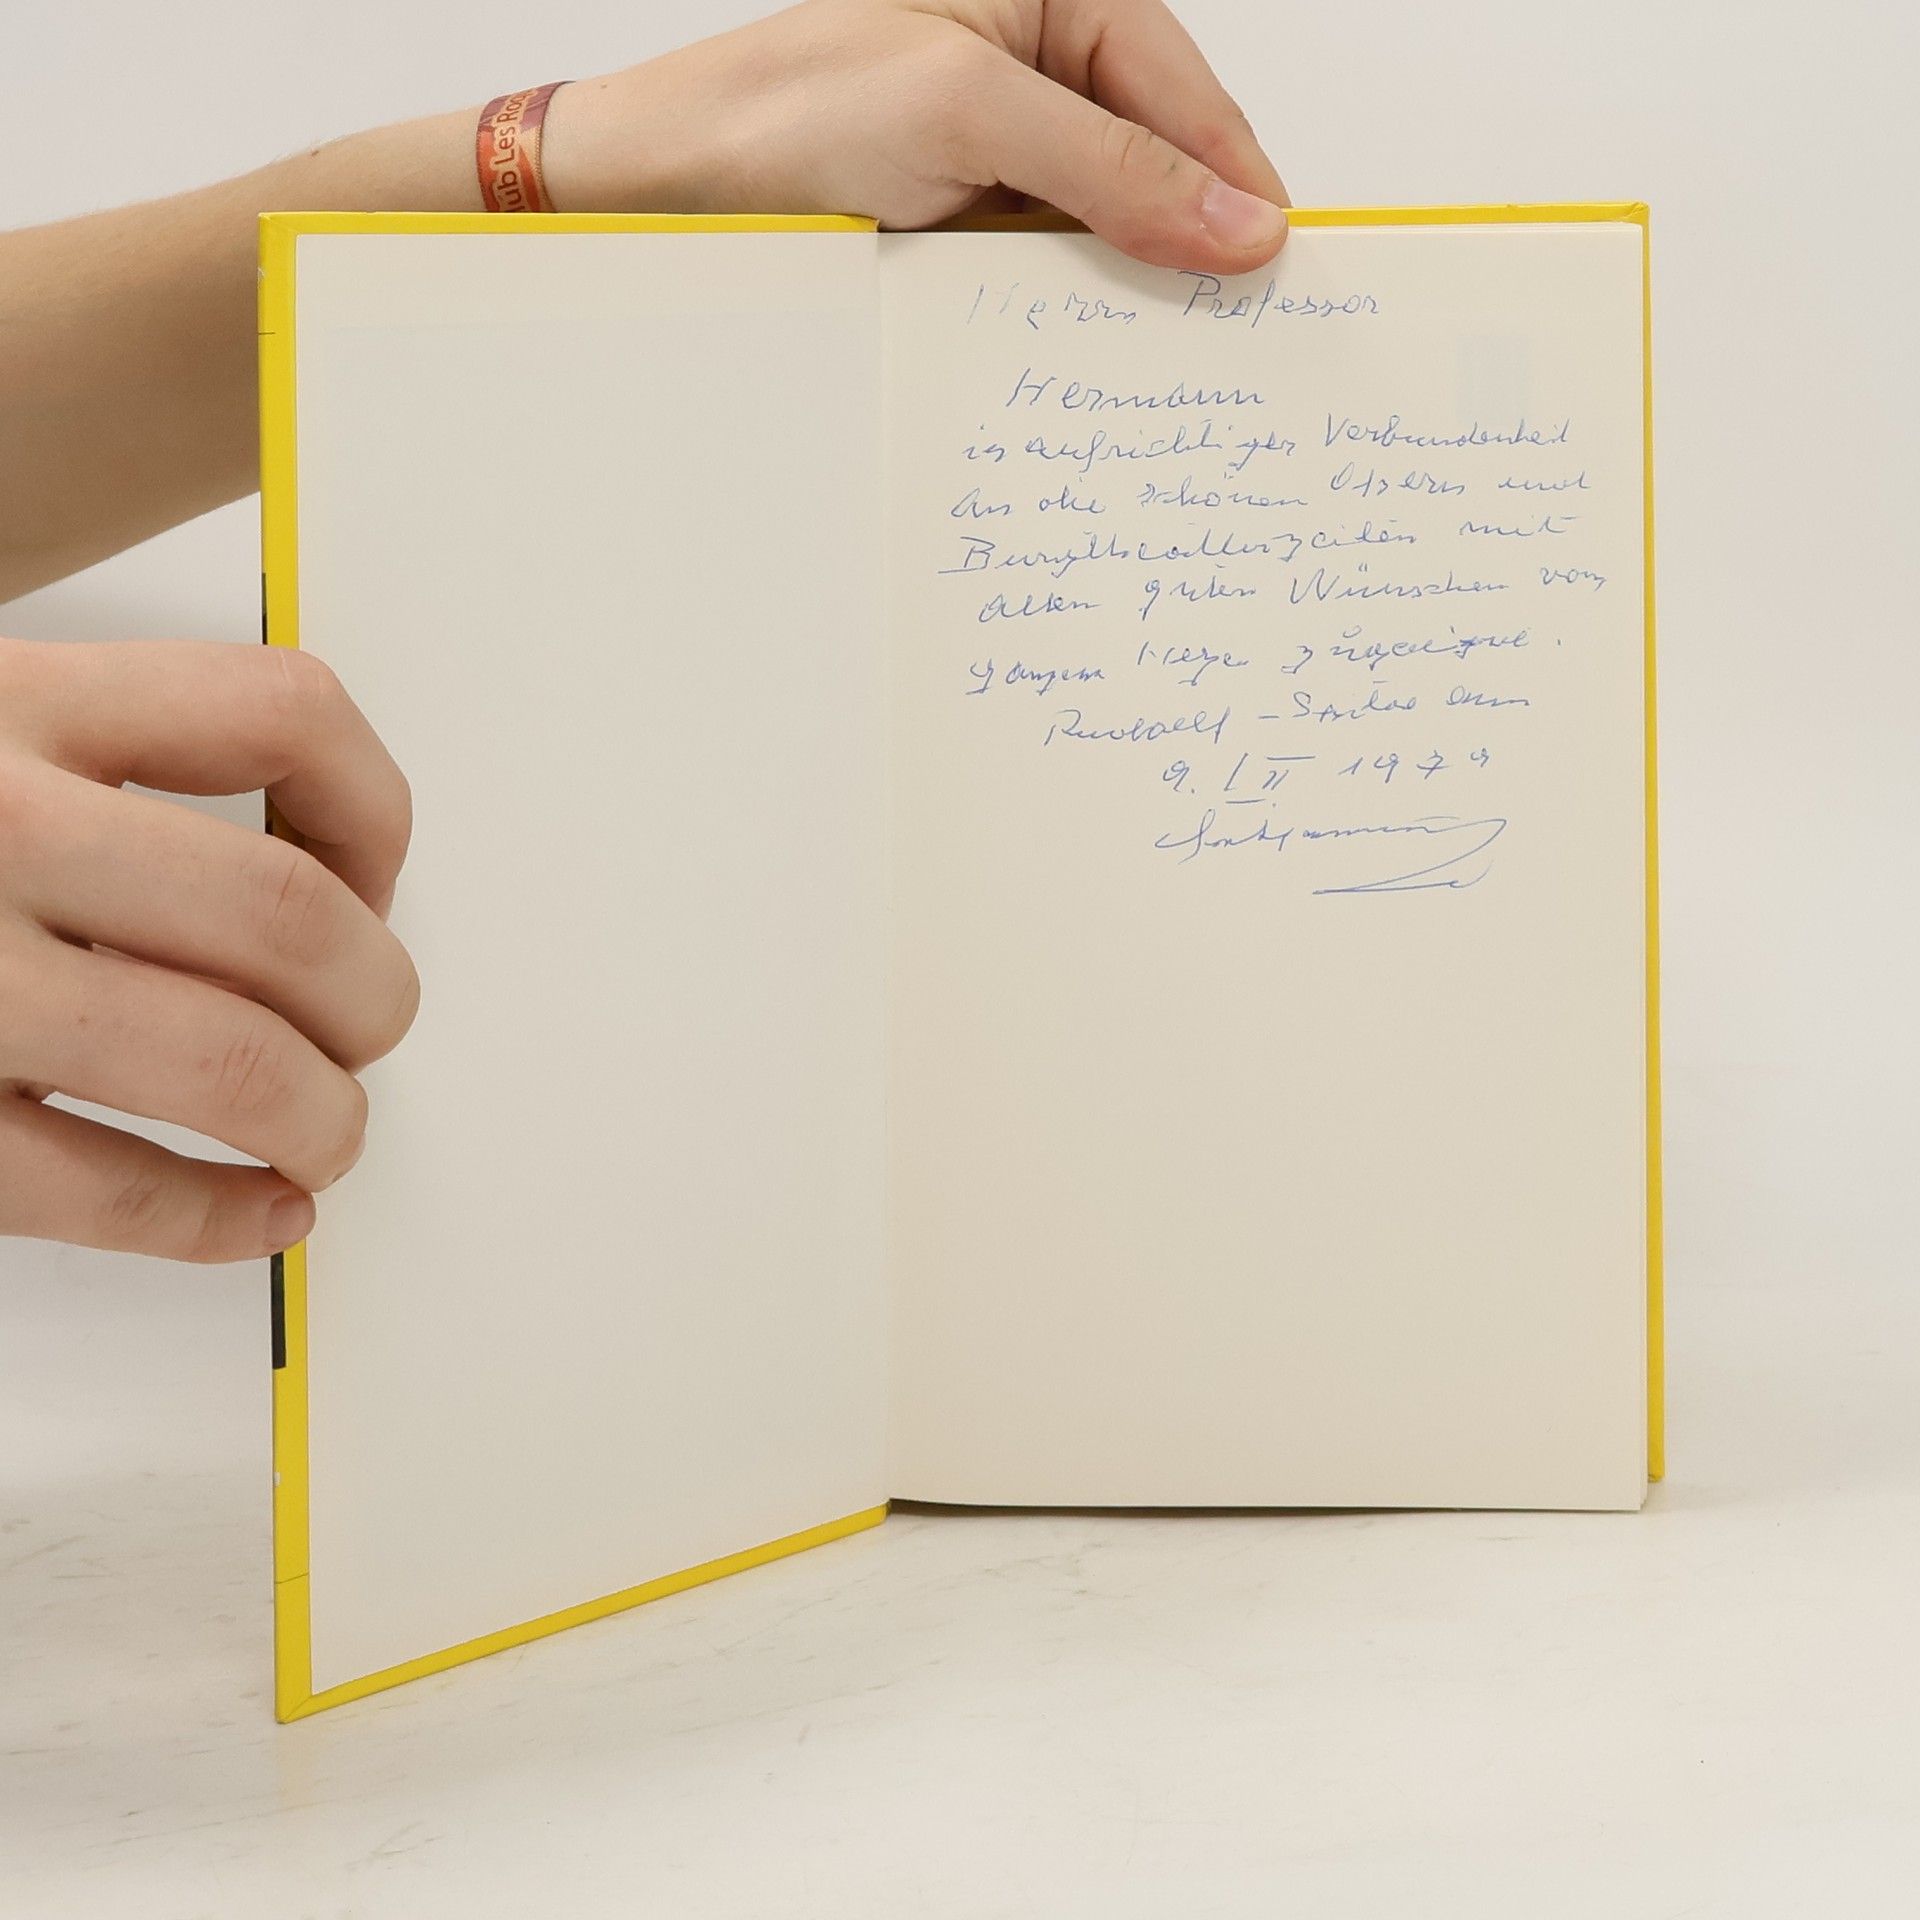 ub Les Roq
Herrn Professor
Hermann
in aufrichtiger Verbundenheit
An die schönen Opern und
Burgtheaterzeiten mit
allen guten Wünschen von
ganzem Herzen zugeeignet.
Rudolf
9. III 1979